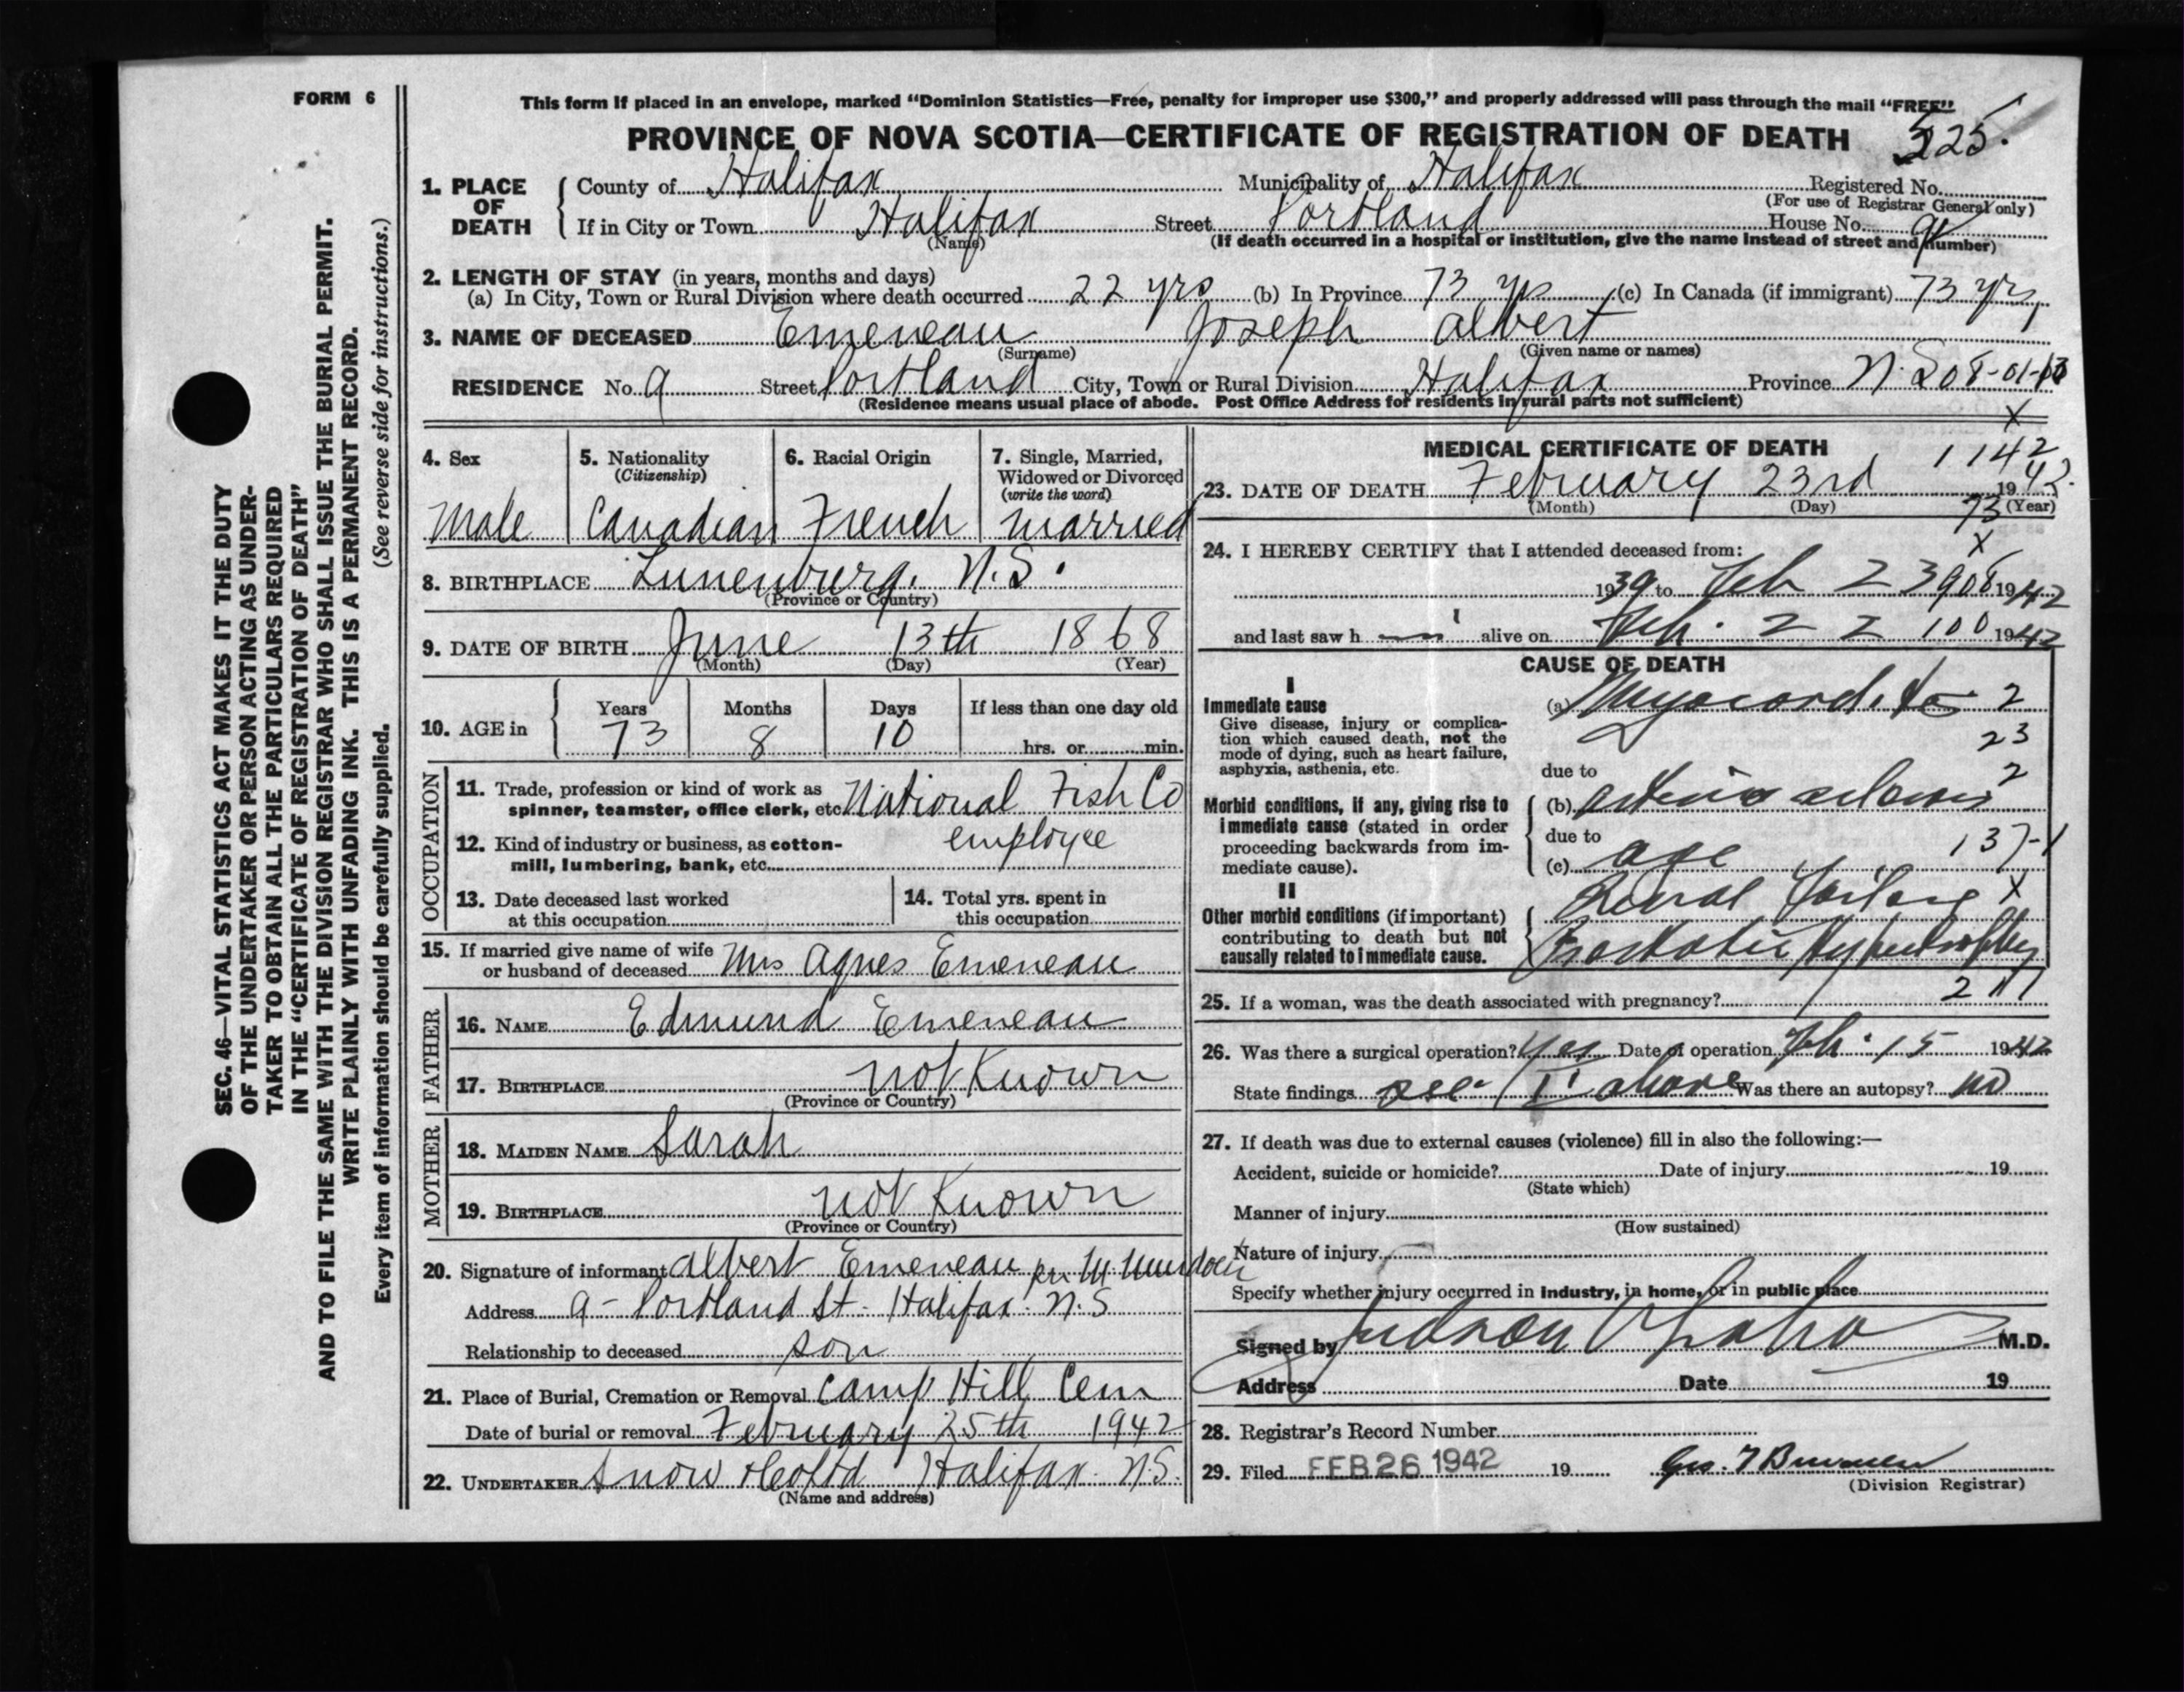 FORM 6
This form if placed in an envelope, marked "Dominion Statistics—Free, penalty for improper use $300," and properly addressed will pass through the mail "FREE"
PROVINCE OF NOVA SCOTIA—CERTIFICATE OF REGISTRATION OF DEATH 525.
SEC. 46—VITAL STATISTICS ACT MAKES IT THE DUTY
OF THE UNDERTAKER OR PERSON ACTING AS UNDER-
TAKER TO OBTAIN ALL THE PARTICULARS REQUIRED
IN THE "CERTIFICATE OF REGISTRATION OF DEATH"
AND TO FILE THE SAME WITH THE DIVISION REGISTRAR WHO SHALL ISSUE THE BURIAL PERMIT.
WRITE PLAINLY WITH UNFADING INK. THIS IS A PERMANENT RECORD.
Every item of information should be carefully supplied. (See reverse side for instructions.)
1. PLACE OF DEATH
County of Halifax Municipality of Halifax Registered No.
(For use of Registrar General only)
If in City or Town Halifax Street Portland House No. 9
(Name) (If death occurred in a hospital or institution, give the name instead of street and number)
2. LENGTH OF STAY (in years, months and days)
(a) In City, Town or Rural Division where death occurred 22 yrs (b) In Province 73 yrs (c) In Canada (if immigrant) 73 yrs
3. NAME OF DECEASED Emeneau Joseph Albert
(Surname) (Given name or names)
RESIDENCE No. 9 Street Portland City, Town or Rural Division Halifax Province N.S. 08-01-13
(Residence means usual place of abode. Post Office Address for residents in rural parts not sufficient)
4. Sex 5. Nationality (Citizenship) 6. Racial Origin 7. Single, Married, Widowed or Divorced (write the word)
Male Canadian French married
8. BIRTHPLACE Lunenburg. N.S.
(Province or Country)
9. DATE OF BIRTH June 13th 1868
(Month) (Day) (Year)
10. AGE in Years Months Days If less than one day old
73 8 10 hrs. or min.
OCCUPATION
11. Trade, profession or kind of work as spinner, teamster, office clerk, etc. National Fish Co
12. Kind of industry or business, as cotton-mill, lumbering, bank, etc. employee
13. Date deceased last worked at this occupation
14. Total yrs. spent in this occupation
15. If married give name of wife or husband of deceased Mrs Agnes Emeneau
FATHER
16. NAME Edmund Emeneau
17. BIRTHPLACE not Known
(Province or Country)
MOTHER
18. MAIDEN NAME Sarah
19. BIRTHPLACE not Known
(Province or Country)
20. Signature of informant Albert Emeneau per M Murdoch
Address 9 - Portland St. Halifax. N.S
Relationship to deceased son
21. Place of Burial, Cremation or Removal Camp Hill Cem
Date of burial or removal February 25th 1942
22. UNDERTAKER Snow & Co Ltd Halifax. N.S.
(Name and address)
X
MEDICAL CERTIFICATE OF DEATH
1142
23. DATE OF DEATH February 23rd 1942.
(Month) (Day) (Year)
73
X
24. I HEREBY CERTIFY that I attended deceased from:
1939 to Feb 23 908 1942
and last saw h alive on Feb. 22 100 1942
CAUSE OF DEATH
I
Immediate cause
Give disease, injury or complica-
tion which caused death, not the
mode of dying, such as heart failure,
asphyxia, asthenia, etc.
(a) Myocarditis 2
23
due to 2
Morbid conditions, if any, giving rise to
immediate cause (stated in order
proceeding backwards from im-
mediate cause).
(b) arterio sclerosis
due to
(c) age 137-1
II
Other morbid conditions (if important)
contributing to death but not
causally related to immediate cause.
Renal Failure X
Prostatic Hypertrophy
25. If a woman, was the death associated with pregnancy? 211
26. Was there a surgical operation? Yes Date of operation Feb. 15 1942
State findings see II above Was there an autopsy? no
27. If death was due to external causes (violence) fill in also the following:—
Accident, suicide or homicide? Date of injury 19
(State which)
Manner of injury
(How sustained)
Nature of injury
Specify whether injury occurred in industry, in home, or in public place
Signed by Judson M.D.
Address Date 19
28. Registrar's Record Number
29. Filed FEB 26 1942 19
(Division Registrar)